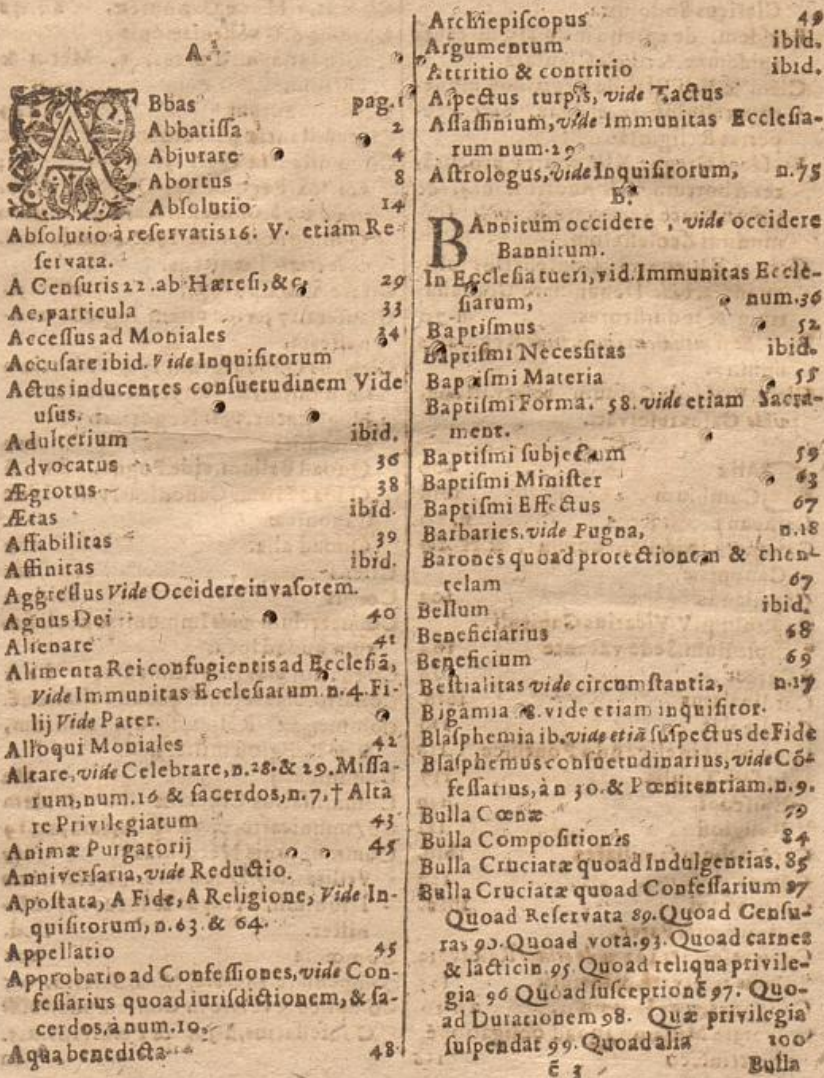 A.
ABbas pag. 1
Abbatiſſa 2
Abjurare 4
Abortus 8
Abſolutio 14
Abſolutio à reſervatis 16. V. etiam Re-
ſervata.
A Cenſuris 22. ab Hæreſi, &c. 29
Ac, particula 33
Acceſſus ad Moniales 34
Accuſare ibid. Vide Inquiſitorum
Actus inducentes conſuetudinem Vide
uſus.
Adulterium ibid.
Advocatus 36
Ægrotus 38
Ætas ibid.
Affabilitas 39
Affinitas ibid.
Aggreſſus Vide Occidere invaſorem.
Agnus Dei 40
Alienare 41
Alimenta Rei confugientis ad Eccleſiã,
Vide Immunitas Eccleſiarum n. 4. Fi-
lij Vide Pater.
Alloqui Moniales 42
Altare, vide Celebrare, n. 28. & 29. Miſſa-
rum, num. 16 & ſacerdos, n. 7. † Alta
re Privilegiatum 43
Animæ Purgatorij 45
Anniverſaria, vide Reductio.
Apoſtata, A Fide, A Religione, Vide In-
quiſitorum, n. 63. & 64.
Appellatio 45
Approbatio ad Confeſſiones, vide Con-
feſſarius quoad iuriſdictionem, & ſa-
cerdos, à num. 10.
Aqua benedicta 48
Archiepiſcopus 49
Argumentum ibid.
Attritio & contritio ibid.
Aſpectus turpis, vide Tactus
Aſſaſſinium, vide Immunitas Eccleſia-
rum num. 29
Aſtrologus, vide Inquiſitorum, n. 75
B.
BAnnitum occidere, vide occidere
Bannitum.
In Eccleſia tueri, vid. Immunitas Eccle-
ſiarum, num. 36
Baptiſmus 52
Baptiſmi Neceſſitas ibid.
Baptiſmi Materia 55
Baptiſmi Forma. 58. vide etiam Sacra-
ment.
Baptiſmi ſubjectum 59
Baptiſmi Miniſter 63
Baptiſmi Effectus 67
Barbaries, vide Pugna, n. 18
Barones quoad protectionem & clien-
telam 67
Bellum ibid.
Beneficiarius 68
Beneficium 69
Beſtialitas vide circumſtantia, n. 17
Bigamia vide etiam inquiſitor.
Blaſphemia ib. vide etiã ſuſpectus de Fide
Blaſphemus conſuetudinarius, vide Cõ-
feſſarius, à n 30. & Pœnitentiam. n. 9.
Bulla Cœnæ 79
Bulla Compoſitionis 84
Bulla Cruciatæ quoad Indulgentias. 85
Bulla Cruciatæ quoad Confeſſarium 87
Quoad Reſervata 89. Quoad Cenſu-
ras 90. Quoad vota. 93. Quoad carnes
& lacticin. 95 Quoad reliqua privile-
gia 96 Quoad ſuſceptionẽ 97. Quo-
ad Durationem 98. Quæ privilegia
ſuſpendat 99. Quoad alia 100
c̃ 3 Bulla